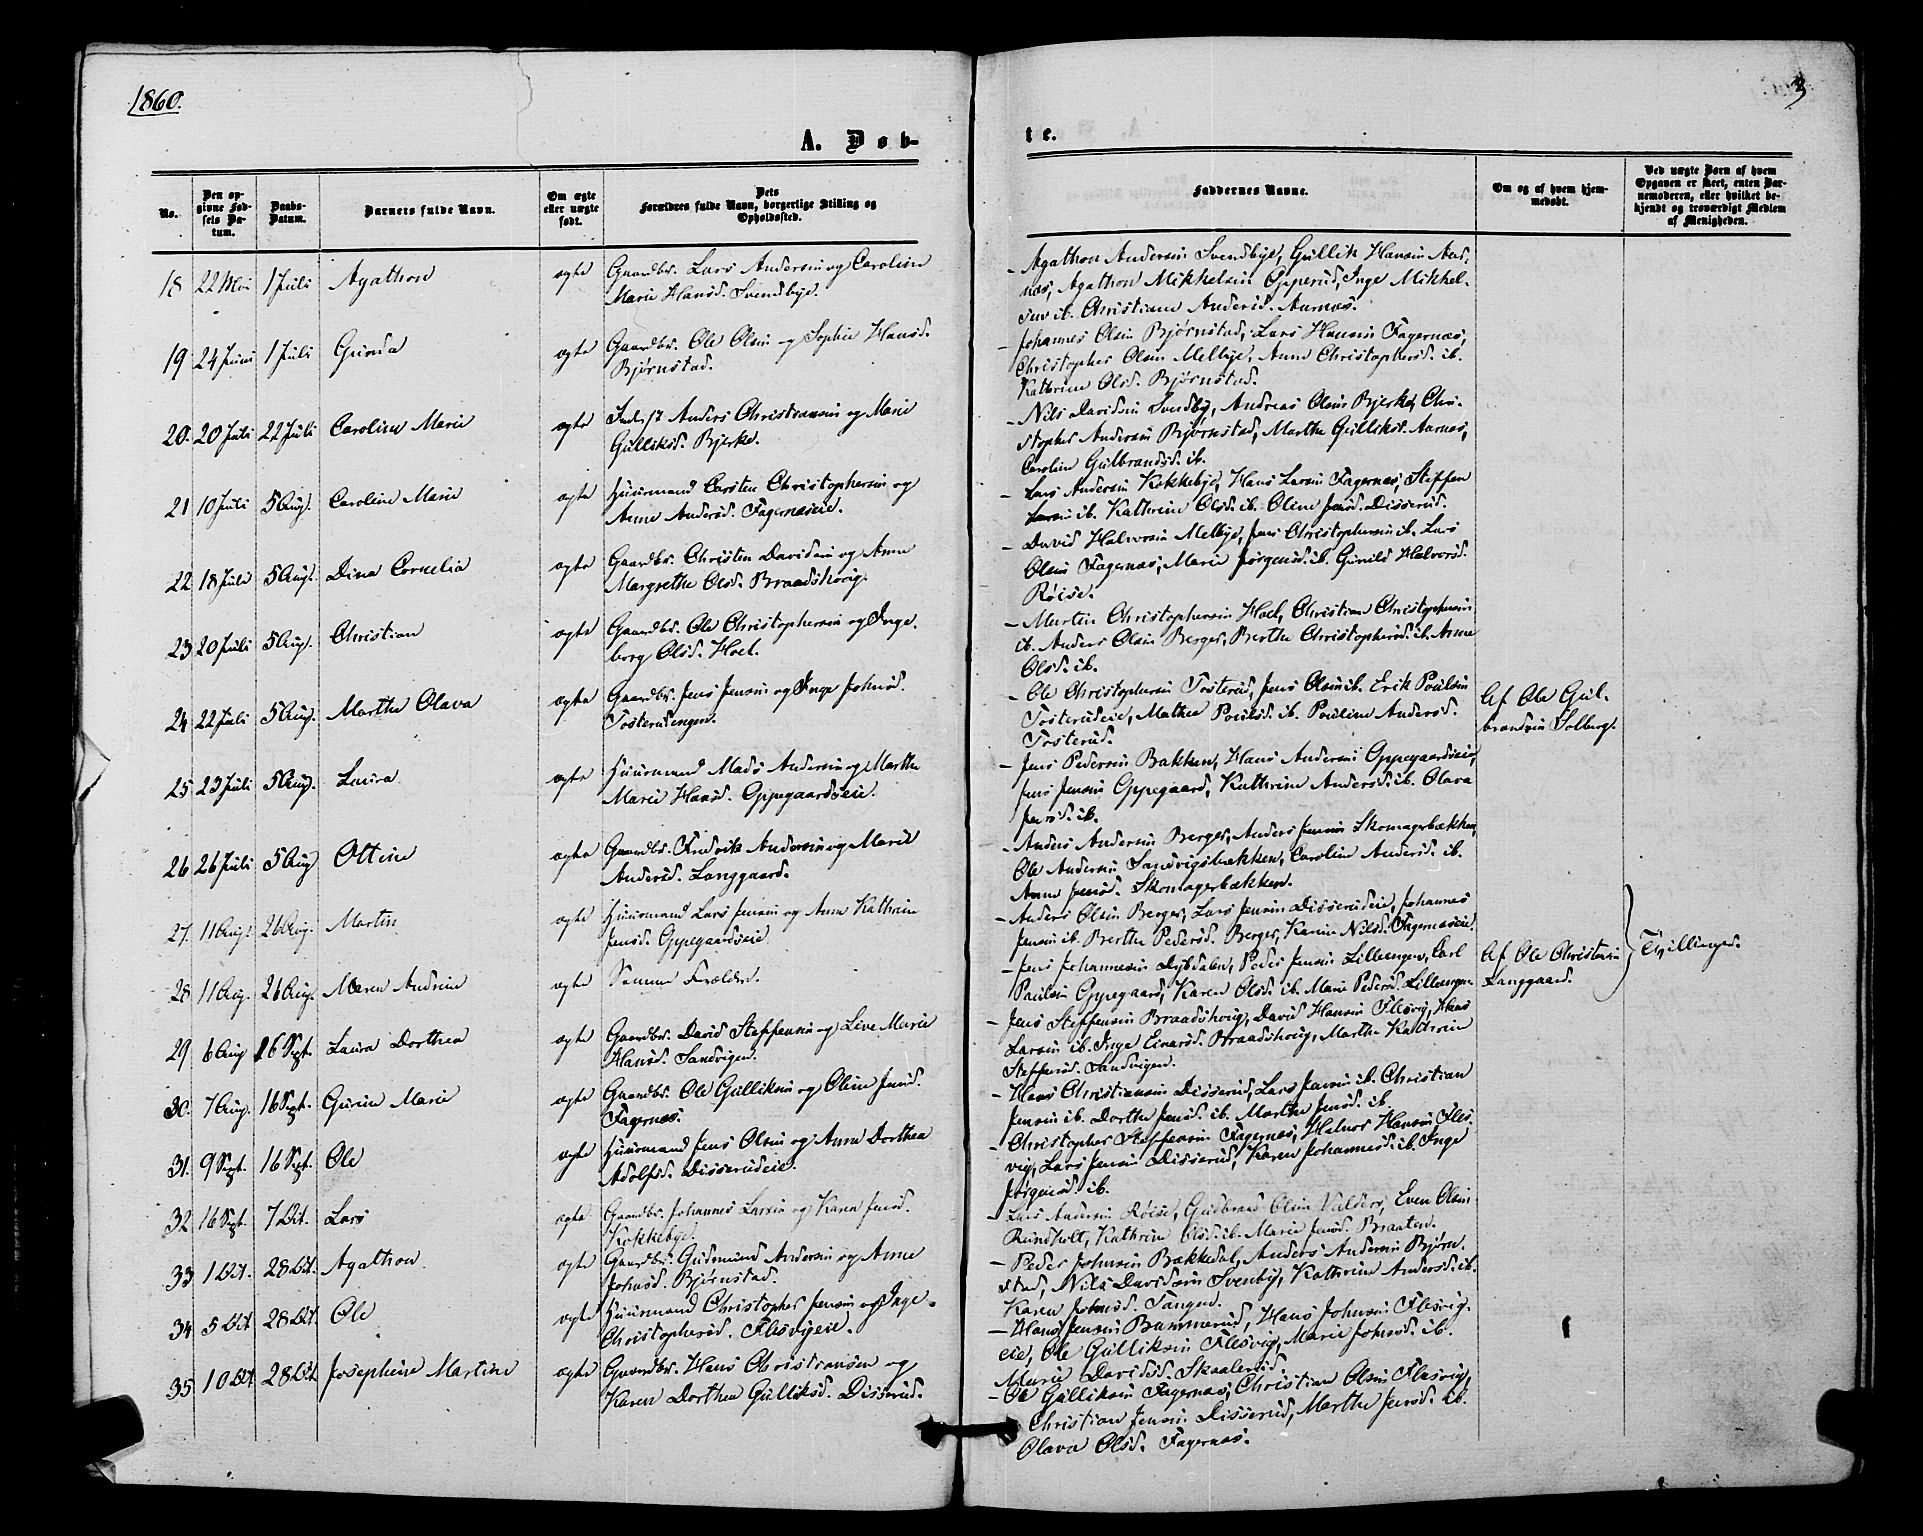 1860.
3
A. Døb-
te.
No.
Den op-
givne Fød-
sels Da-
tum.
Daabs-
Datum.
Barnets fulde Navn.
Om ægte
eller uægte
født.
Dets
Forældres fulde Navn, borgerlige Stilling og
Opholdssted.
Faddernes Navne.
Om og af hvem hjem-
medøbt.
Ved uægte Børn af hvem
Opgaven er skeet, enten Bar-
nemoderen, eller hvilket be-
kjendt og troværdigt Medlem
af Menigheden.
18 22 Mai 1 Juli Agathon ægte Gaardbr. Lars Andersen og Caroline
Marie Hansd. Svendbye.
- Agathon Andersen Svendbye, Gullik Hansen Aar-
næs, Agathon Mikkelsen Opperud, Inge Mikkel-
sen ib. Christiane Andersd. Aarnæs.
19 24 Juni 1 Juli Gunda ægte Gaardbr. Ole Olsen og Sophie Hansd.
Bjørnstad.
- Johannes Olsen Bjørnstad, Lars Hansen Fagernæs,
Christopher Olsen Melbye, Anne Christophersd. ib.
Kathrine Olsd. Bjørnstad.
20. 20 Juli 22 Juli Caroline Marie ægte Inderst Anders Christiansen og Marie
Gulliksd. Bjerke.
- Nils Davidsen Svendby, Andreas Olsen Bjerke, Chri-
stopher Andersen Bjørnstad, Marthe Gulliksd. Aarnæs,
Caroline Gulbrandsd. ib.
21 10 Juli 5 Aug. Caroline Marie ægte Huusmand Carsten Christophersen og
Anne Andersd. Fagernæseie.
- Lars Andersen Kokkebye, Hans Larsen Fagernæs, Steffen
Larsen ib. Kathrine Olsd. ib. Oline Jensd. Disserud.
22 18 Juli 5 Aug. Dina Cornelia ægte Gaardbr. Christen Davidsen og Anne
Margrethe Olsd. Braadshoug.
- David Halvorsen Melbye, Jens Christophersen ib. Lars
Olsen Fagernæs, Marie Jørgensd. ib. Gunild Halvorsd.
Røise.
23 20 Juli 5 Aug. Christian ægte Gaardbr. Ole Christophersen og Inge-
borg Olsd. Hoel.
- Martin Christophersen Hoel, Christian Christophersen
ib. Anders Olsen Berger, Berthe Christophersd. ib. Anne
Olsd. ib.
24 22 Juli 5 Aug. Marthe Olava ægte Gaardbr. Jens Jensen og Inge Johnsd.
Tosterudengen.
- Ole Christophersen Tosterud, Jens Olsen ib. Erik Poulsen
Tosterudeie, Mathea Poulsd. ib. Pouline Andersd.
Tosterud.
Af Ole Gul-
brandsen Solberg.
25 23 Juli 5 Aug. Laura ægte Huusmand Mads Andersen og Marthe
Marie Hansd. Oppegaardseie.
- Jens Pedersen Bakken, Hans Andersen Oppegaardseie,
Jens Jensen Oppegaard, Kathrine Andersd. ib. Olava
Jensd. ib.
26 26 Juli 5 Aug Ottine ægte Gaardbr. Fredrik Andersen og Marie
Andersd. Langgaard.
- Anders Andersen Berger, Anders Jensen Skomagerbækken,
Ole Andersen Sandvigsbækken, Caroline Andersd. ib.
Anne Jensd. Skomagerbækken.
27. 11 Aug. 26 Aug. Martin ægte Huusmand Lars Jensen og Anne Kathrine
Jensd. Oppegaardseie.
- Anders Olsen Berger, Lars Jensen Disserudeie, Johannes
Jensen ib. Berthe Pedersd. Berger, Karine Nilsd. Fagernæseie.
Tvillinger.
28 11 Aug. 26 Aug. Maren Andrine ægte Samme Forældre.
- Jens Johannesen Dybdalen, Peder Jensen Lilleengen, Carl
Paulsen Oppegaard, Karen Olsd. ib. Marie Pedersd. Lilleengen.
Af Ole Christensen
Langgaard.
29 6 Aug 16 Sept. Laura Dorthea ægte Gaardbr. David Steffensen og Live Marie
Hansd. Sandvigen.
- Jens Steffensen Braadshoug, David Hansen Flesvig, Hans
Larsen ib. Inge Einarsd. Braadshoug, Marthe Kathrine
Steffensd. Sandvigen.
30. 7 Aug. 16 Sept. Gurine Marie ægte Gaardbr. Ole Gulliksen og Oline Jensd.
Fagernæs.
- Hans Christiansen Disserud, Lars Jensen ib. Christian
Jensen ib. Dorthe Jensd. ib. Marthe Jensd. ib.
31. 9 Sept. 16 Sept. Ole ægte Huusmand Jens Olsen og Anne Dorthea
Adolfsd. Disserudeie.
- Christopher Steffensen Fagernæs, Halvor Hansen Fles-
vig, Lars Jensen Disserud, Karen Johannesd. ib. Inge
Jørgensd. ib.
32 16 Sept. 7 Oct. Lars ægte Gaardbr. Johannes Larsen og Karen Jensd.
Kokkebye.
- Lars Andersen Røise, Gudbrand Olsen Valders, Even Olsen
Rundholt, Kathrine Olsd. ib. Marie Jensd. Braaten.
33 1 Oct. 28 Oct. Agathon. ægte Gaardbr. Gudmund Andersen og Anne
Johnsd. Bjørnstad.
- Peder Johnsen Bækkedal, Anders Andersen Bjørn-
stad, Nils Davidsen Svenby, Kathrine Andersd. ib.
Karen Johnsd. Tangen.
34 5 Oct 28 Oct. Ole ægte Huusmand Christopher Jensen og Inge
Christophersd. Flesvigeie.
- Hans Jensen Bammerud, Hans Johnsen Flesvig-
eie, Ole Gulliksen Flesvig, Marie Johnsd. ib.
Marie Davidsd. Skaalerud.
35 10 Oct 28 Oct Josephine Martine ægte Gaardbr. Hans Christiansen og
Karen Dorthea Gulliksd. Disserud.
- Ole Gulliksen Fagernæs, Christian Olsen Flesvig,
Christian Jensen Disserud, Marthe Jensd. ib.
Olava Olsd. Fagernæs.